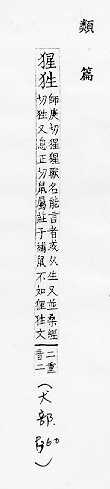 類篇
猩狌師庚切猩猩獸名能言者或从生又並桑經
切狌又息正切鼠屬莊子捕鼠不如狸狌文
二重
音二
(犬部.)